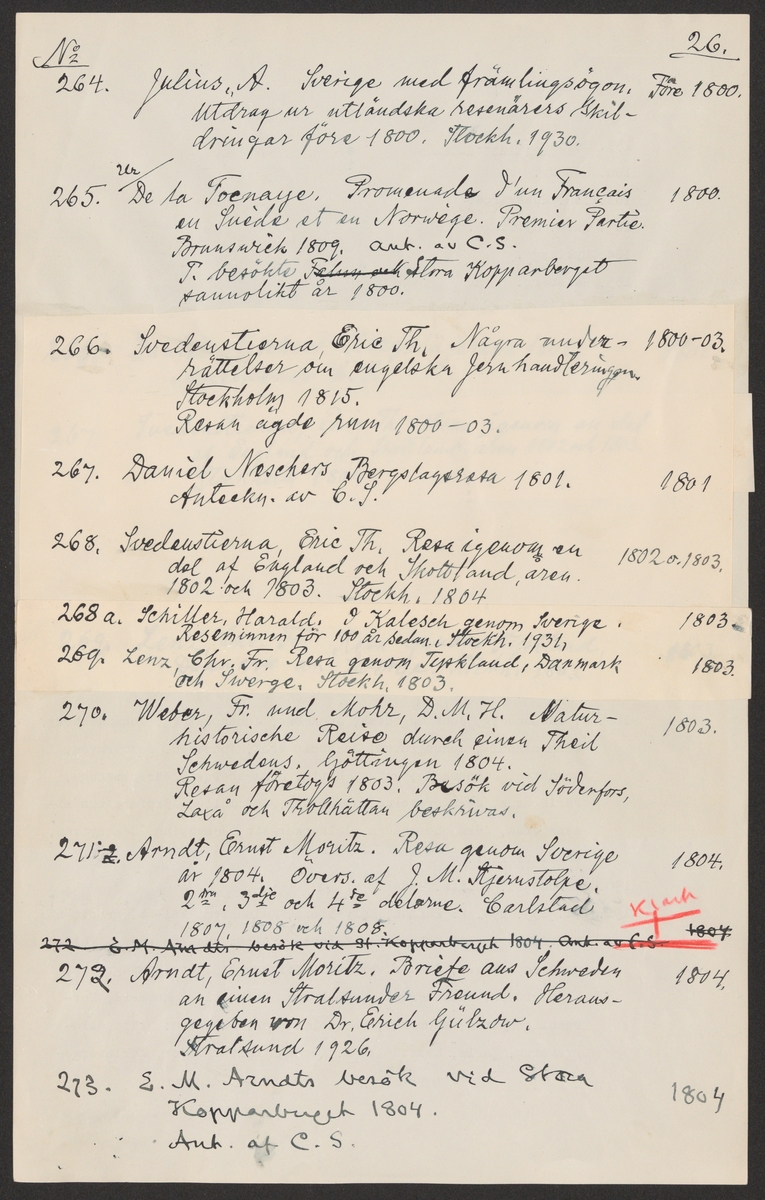 No 26.
264. Julius, A. Sverige med främlingsögon. Före 1800.
Utdrag ur utländska resenärers skil-
dringar före 1800. Stockh. 1930.
Ur
265. De la Tocnaye. Promenade d'un Français 1800.
en Suède et en Norwège. Premier Partie.
Brunswick 1809. Ant. av C.S.
T. besökte Falun och Stora Kopparberget
sannolikt år 1800.
266. Svedenstierna, Eric Th. Några under- 1800-03.
rättelser om engelska Jernhandteringen.
Stockholm 1815.
Resan ägde rum 1800-03.
267. Daniel Neschers Bergslagsresa 1801. 1801
Anteckn. av C.S.
268. Svedenstierna, Eric Th. Resa igenom en
del af England och Skottland, åren 1802 o. 1803.
1802 och 1803. Stockh. 1804
268 a. Schiller, Harald. I Kalesch genom Sverige. 1803.
Reseminnen för 100 år sedan. Stockh. 1931.
269. Lenz, Chr. Fr. Resa genom Tyskland, Danmark 1803.
och Swerge. Stockh. 1803.
270. Weber, Fr. und Mohr, D.M.H. Natur- 1803.
historische Reise durch einen Theil
Schwedens. Göttingen 1804.
Resan företogs 1803. Besök vid Söderfors,
Laxå och Trollhättan beskrivas.
271. Arndt, Ernst Moritz. Resa genom Sverige 1804.
år 1804. Övers. af J.M. Stjernstolpe.
2dra, 3dje och 4de delarne. Carlstad
1807, 1808 och 1808.
272 E.M. Arndts besök vid St. Kopparberget 1804. Ant. av C.S. 1804.
272. Arndt, Ernst Moritz. Briefe aus Schweden 1804.
an einen Stralsunder Freund. Heraus-
gegeben von Dr. Erich Gülzow.
Stralsund 1926.
273. E. M. Arndts besök vid Stora
Kopparberget 1804. 1804
Ant. af C.S.